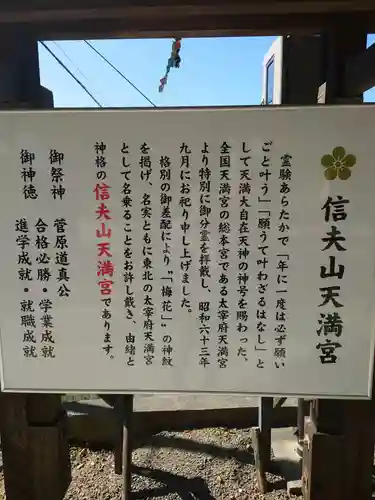 信夫山天満宮
霊験あらたかで「年に一度は必ず願い
ごと叶う」「願うて叶わざるはなし」と
して天満大自在天神の神号を賜わった、
全国天満宮の総本宮である太宰府天満宮
より特別に御分霊を拝戴し、昭和六十三年
九月にお祀り申し上げました。
格別の御差配により〝「梅花」〟の神紋
を掲げ、名実ともに東北の太宰府天満宮
として名乗ることをお許し戴き、由緒と
神格の信夫山天満宮であります。
御祭神　菅原道真公
御神徳　合格必勝・学業成就
進学成就・就職成就